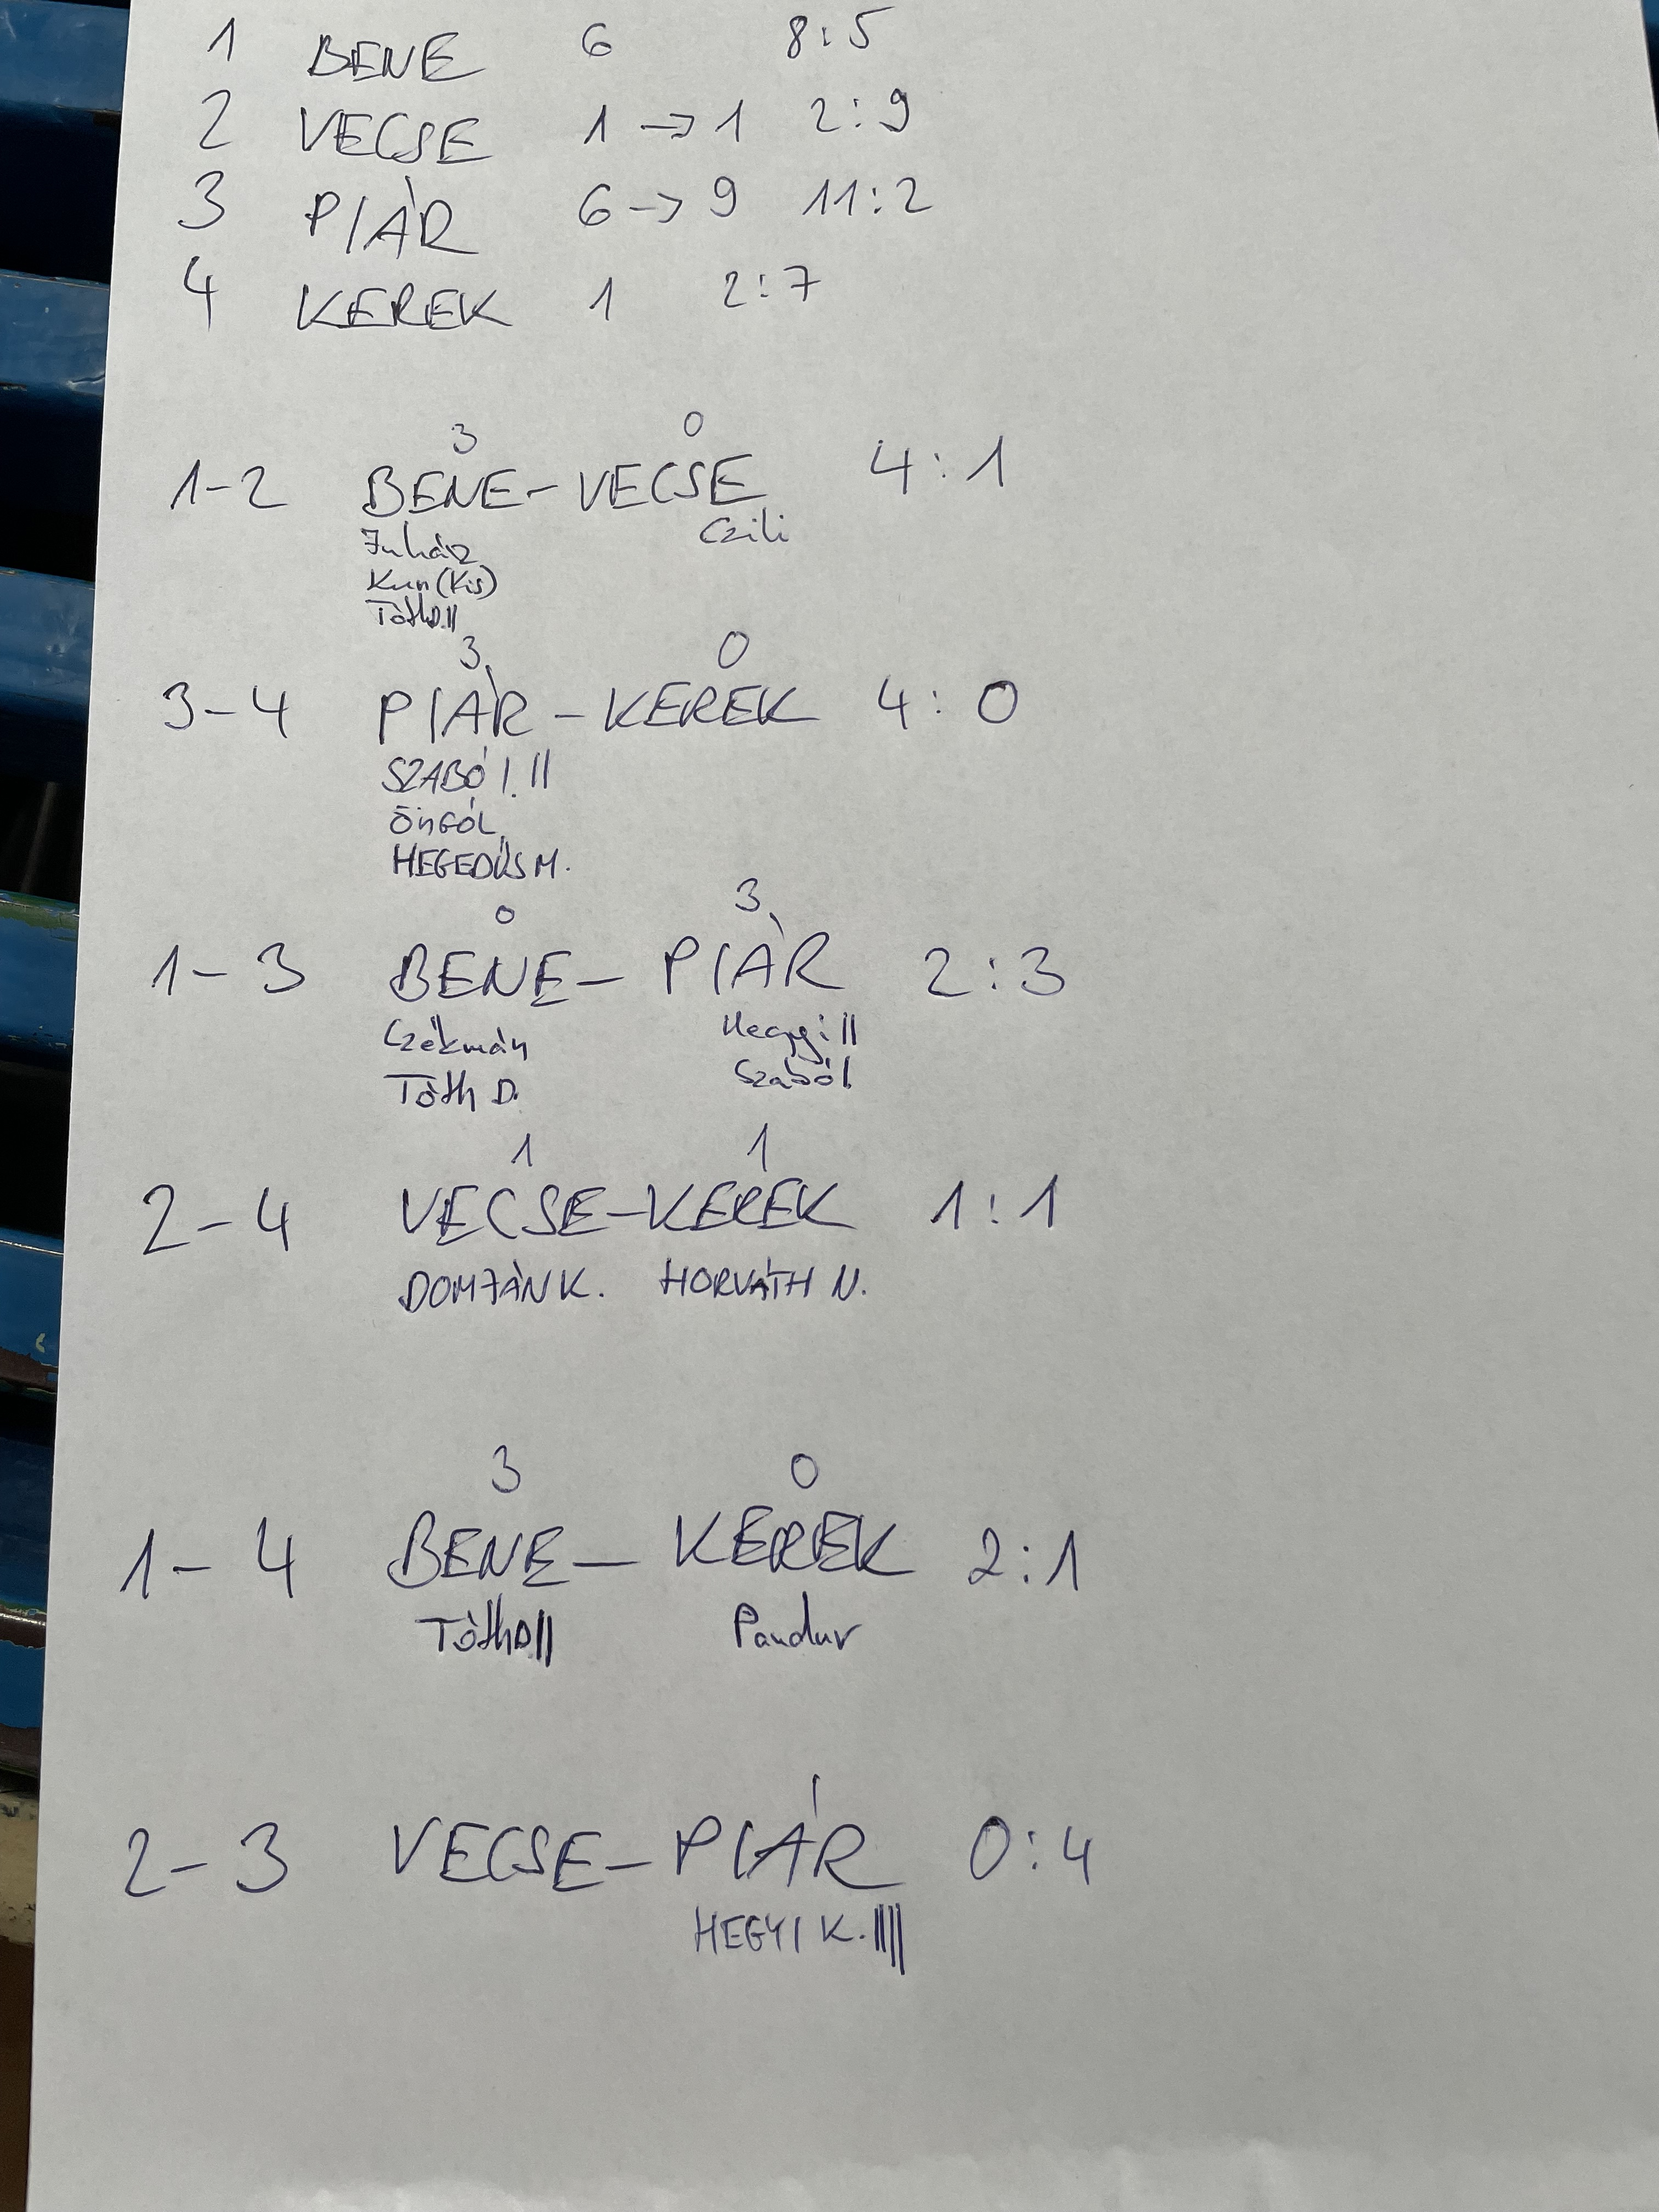 1 BENE 6 8:5
2 VECSE 1 → 1 2:9
3 PIÁR 6 → 9 11:2
4 KEREK 1 2:7
3 0
1-2 BENE - VECSE 4:1
Juhász Czili
Kun (Kis)
Tóth D. II
3 0
3-4 PIÁR - KEREK 4:0
SZABÓ I. II
ÖNGÓL
HEGEDŰS M.
0 3
1-3 BENE - PIÁR 2:3
Czékmán Hegyi II
Tóth D. Szabó I.
1 1
2-4 VECSE - KEREK 1:1
DOMJÁN K. HORVÁTH N.
3 0
1-4 BENE - KEREK 2:1
Tóth D II Pandur
2-3 VECSE - PIÁR 0:4
HEGYI K. IIII